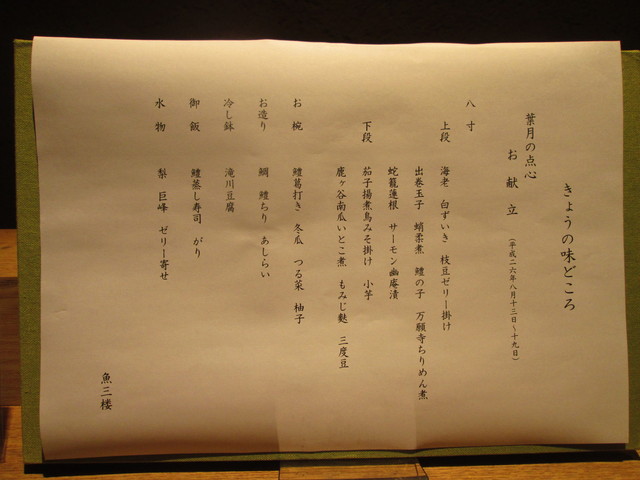 きょうの味どころ
葉月の点心
お献立
(平成二六年八月十三日～十九日)
八寸
上段 海老 白ずいき 枝豆ゼリー掛け
出巻玉子 蛸柔煮 鱧の子 万願寺ちりめん煮
蛇籠蓮根 サーモン幽庵漬
下段 茄子揚煮鳥みそ掛け 小芋
鹿ヶ谷南瓜いとこ煮 もみじ麩 三度豆
お椀 鱧葛打き 冬瓜 つる菜 柚子
お造り 鯛 鱧ちり あしらい
冷し鉢 滝川豆腐
御飯 鱧蒸し寿司 がり
水物 梨 巨峰 ゼリー寄せ
魚三楼